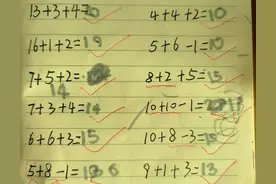 13+3+4=20 4+4+2=10
16+1+2=19 5+6-1=10
7+5+2= 14
8+2+5=15
7+3+4=14 10+10-1=
6+6+3=15 10+8-3=15
5+8-1= 9+1+3=13